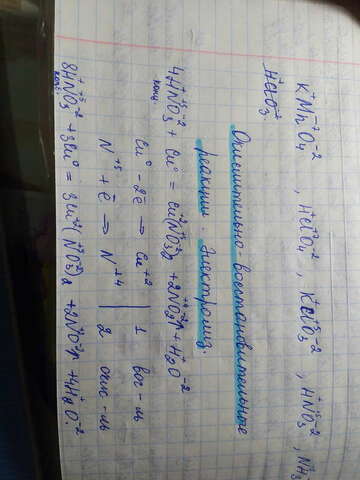 K⁺Mn⁺⁷O₄⁻², H⁺Cl⁺⁷O₄⁻², K⁺Cl⁺⁵O₃⁻², H⁺N⁺⁵O₃⁻², NH₃
H⁺ClO₃⁻²
Окислительно-восстановительные
реакции. Электролиз.
4H⁺N⁺⁵O₃⁻² + Cu⁰ = Cu⁺²(N⁺⁵O₃⁻²)₂ + 2N⁺⁴O₂⁻²↑ + H₂⁺O⁻²
конц
Cu⁰ - 2ē → Cu⁺² | 1 вос-ль
N⁺⁵ + ē → N⁺⁴ | 2 окис-ль
8H⁺N⁺⁵O₃⁻² + 3Cu⁰ = 3Cu⁺²(N⁺⁵O₃⁻²)₂ + 2N⁺²O⁻²↑ + 4H₂⁺O⁻²